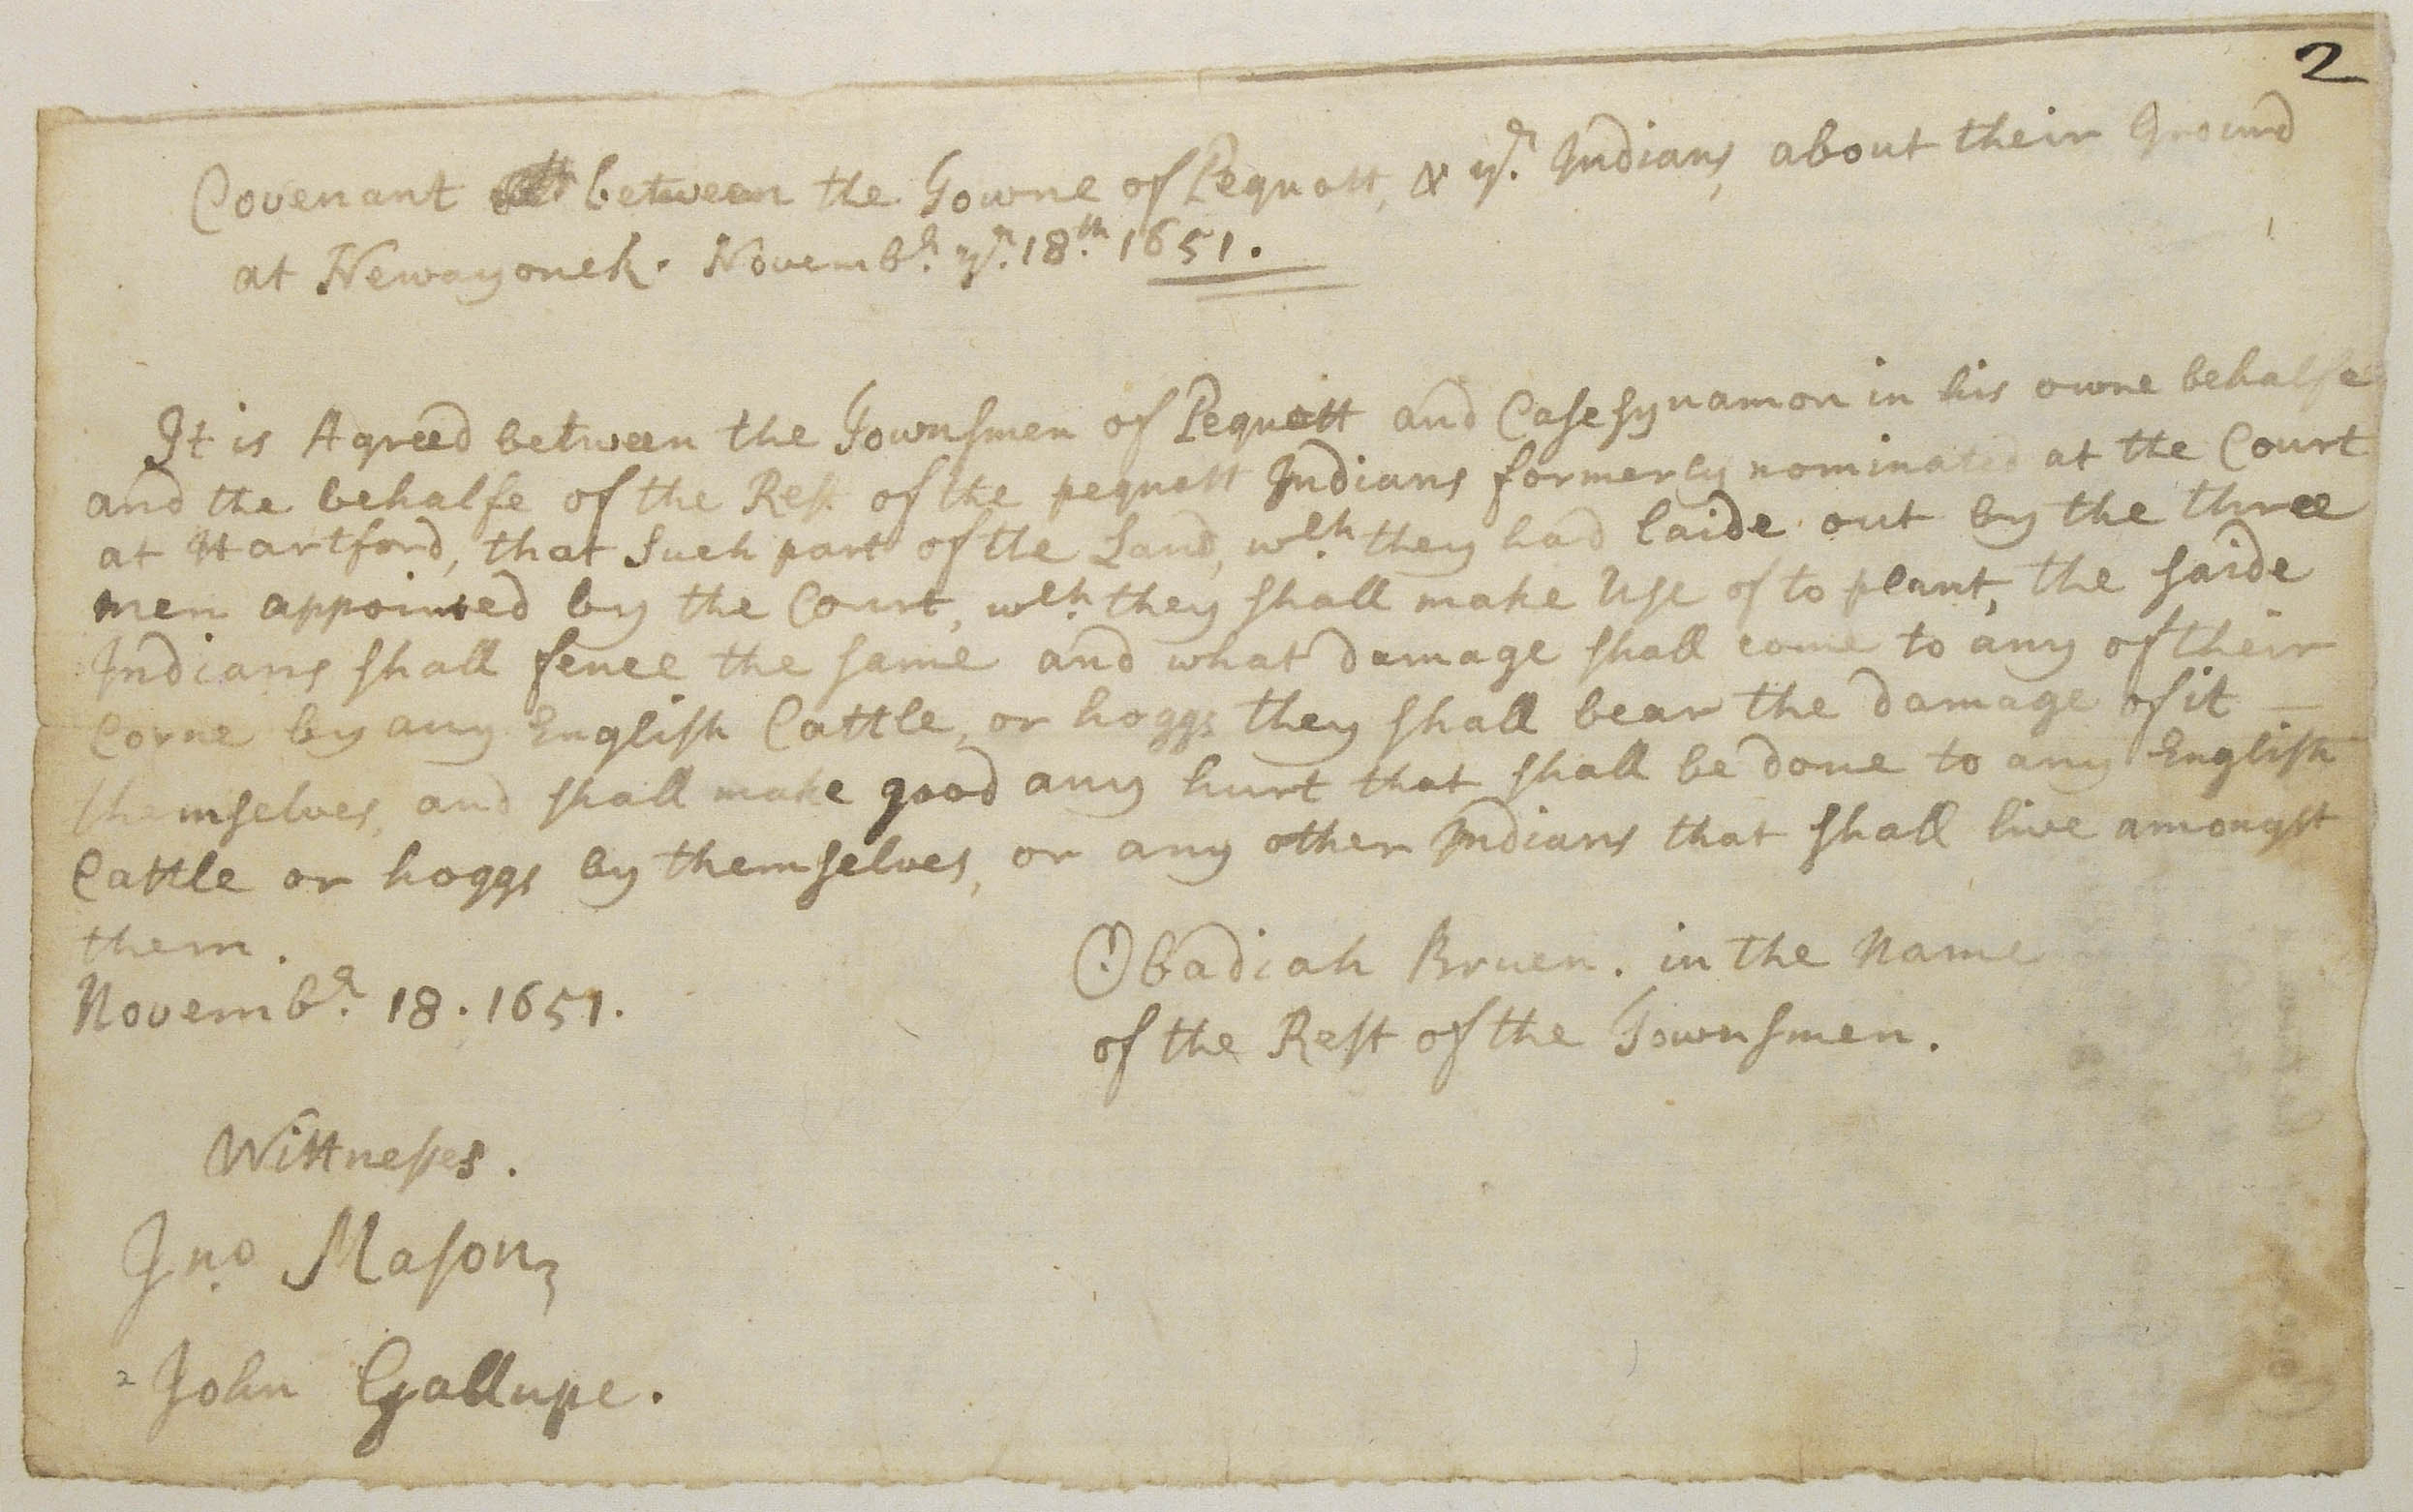 2
Covenant between the Towne of Pequott, & yᵉ Indians, about their Ground
at Nawayonck. Novembʳ yᵉ 18th 1651.
It is Agreed between the Townsmen of Pequott and Casesynamon in his owne behalfe
and the behalfe of the Rest of the pequott Indians formerly nominated at the Court
at Hartford, that Such part of the Land, wch they had laide out by the three
men appointed by the Court, wch they shall make Use of to plant, the saide
Indians shall fence the same and what damage shall come to any of their
Corne by any English Cattle, or hoggs they shall bear the damage of it
themselves, and shall make good any hurt that shall be done to any English
Cattle or hoggs by themselves, or any other Indians that shall live amongst
them.
Novembʳ 18. 1651.
Obadiah Bruen. in the Name
of the Rest of the Townsmen.
Wittnesses.
Jno Mason
John Gallupe.